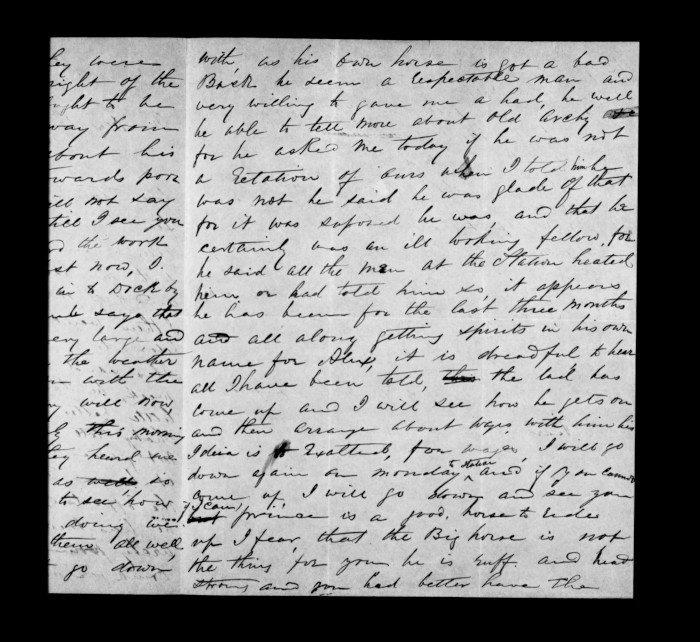 ley were
right of the
ought to be
way from
about his
towards poor
ill not say
till I see you
the work
st now, I.
to Dick by
says that
very large and
the weather
with the
will now,
this morning
they heard me
as well so
to see how
doing we
them all well
go down
with as his own horse is got a bad
Back he seem a respectable man and
very willing to gave me a had, he will
be able to tell more about Old Archy
for he asked me today if he was not
a retation of ours when I told him he
was not he said he was glade of that
for it was suposed he was, and that he
certainly was an ill looking fellow, for
he said all the men at the Station heated
him or had told him so, it appears,
he has been for the last three months
and all along getting spirits in his own
name for Alex, it is dreadful to hear
all I have been told, this the lad has
come up and I will see how he gets on
and then arrange about wages with him his
Ideia is Exalted, for wages, I will go
down again on monday to station and if you cannot
come up, I will go down and see you
if you can,
but prince is a good horse to ride
up I fear, that the Big horse is not
the thing for you he is Ruff and head
strong and you had better have the